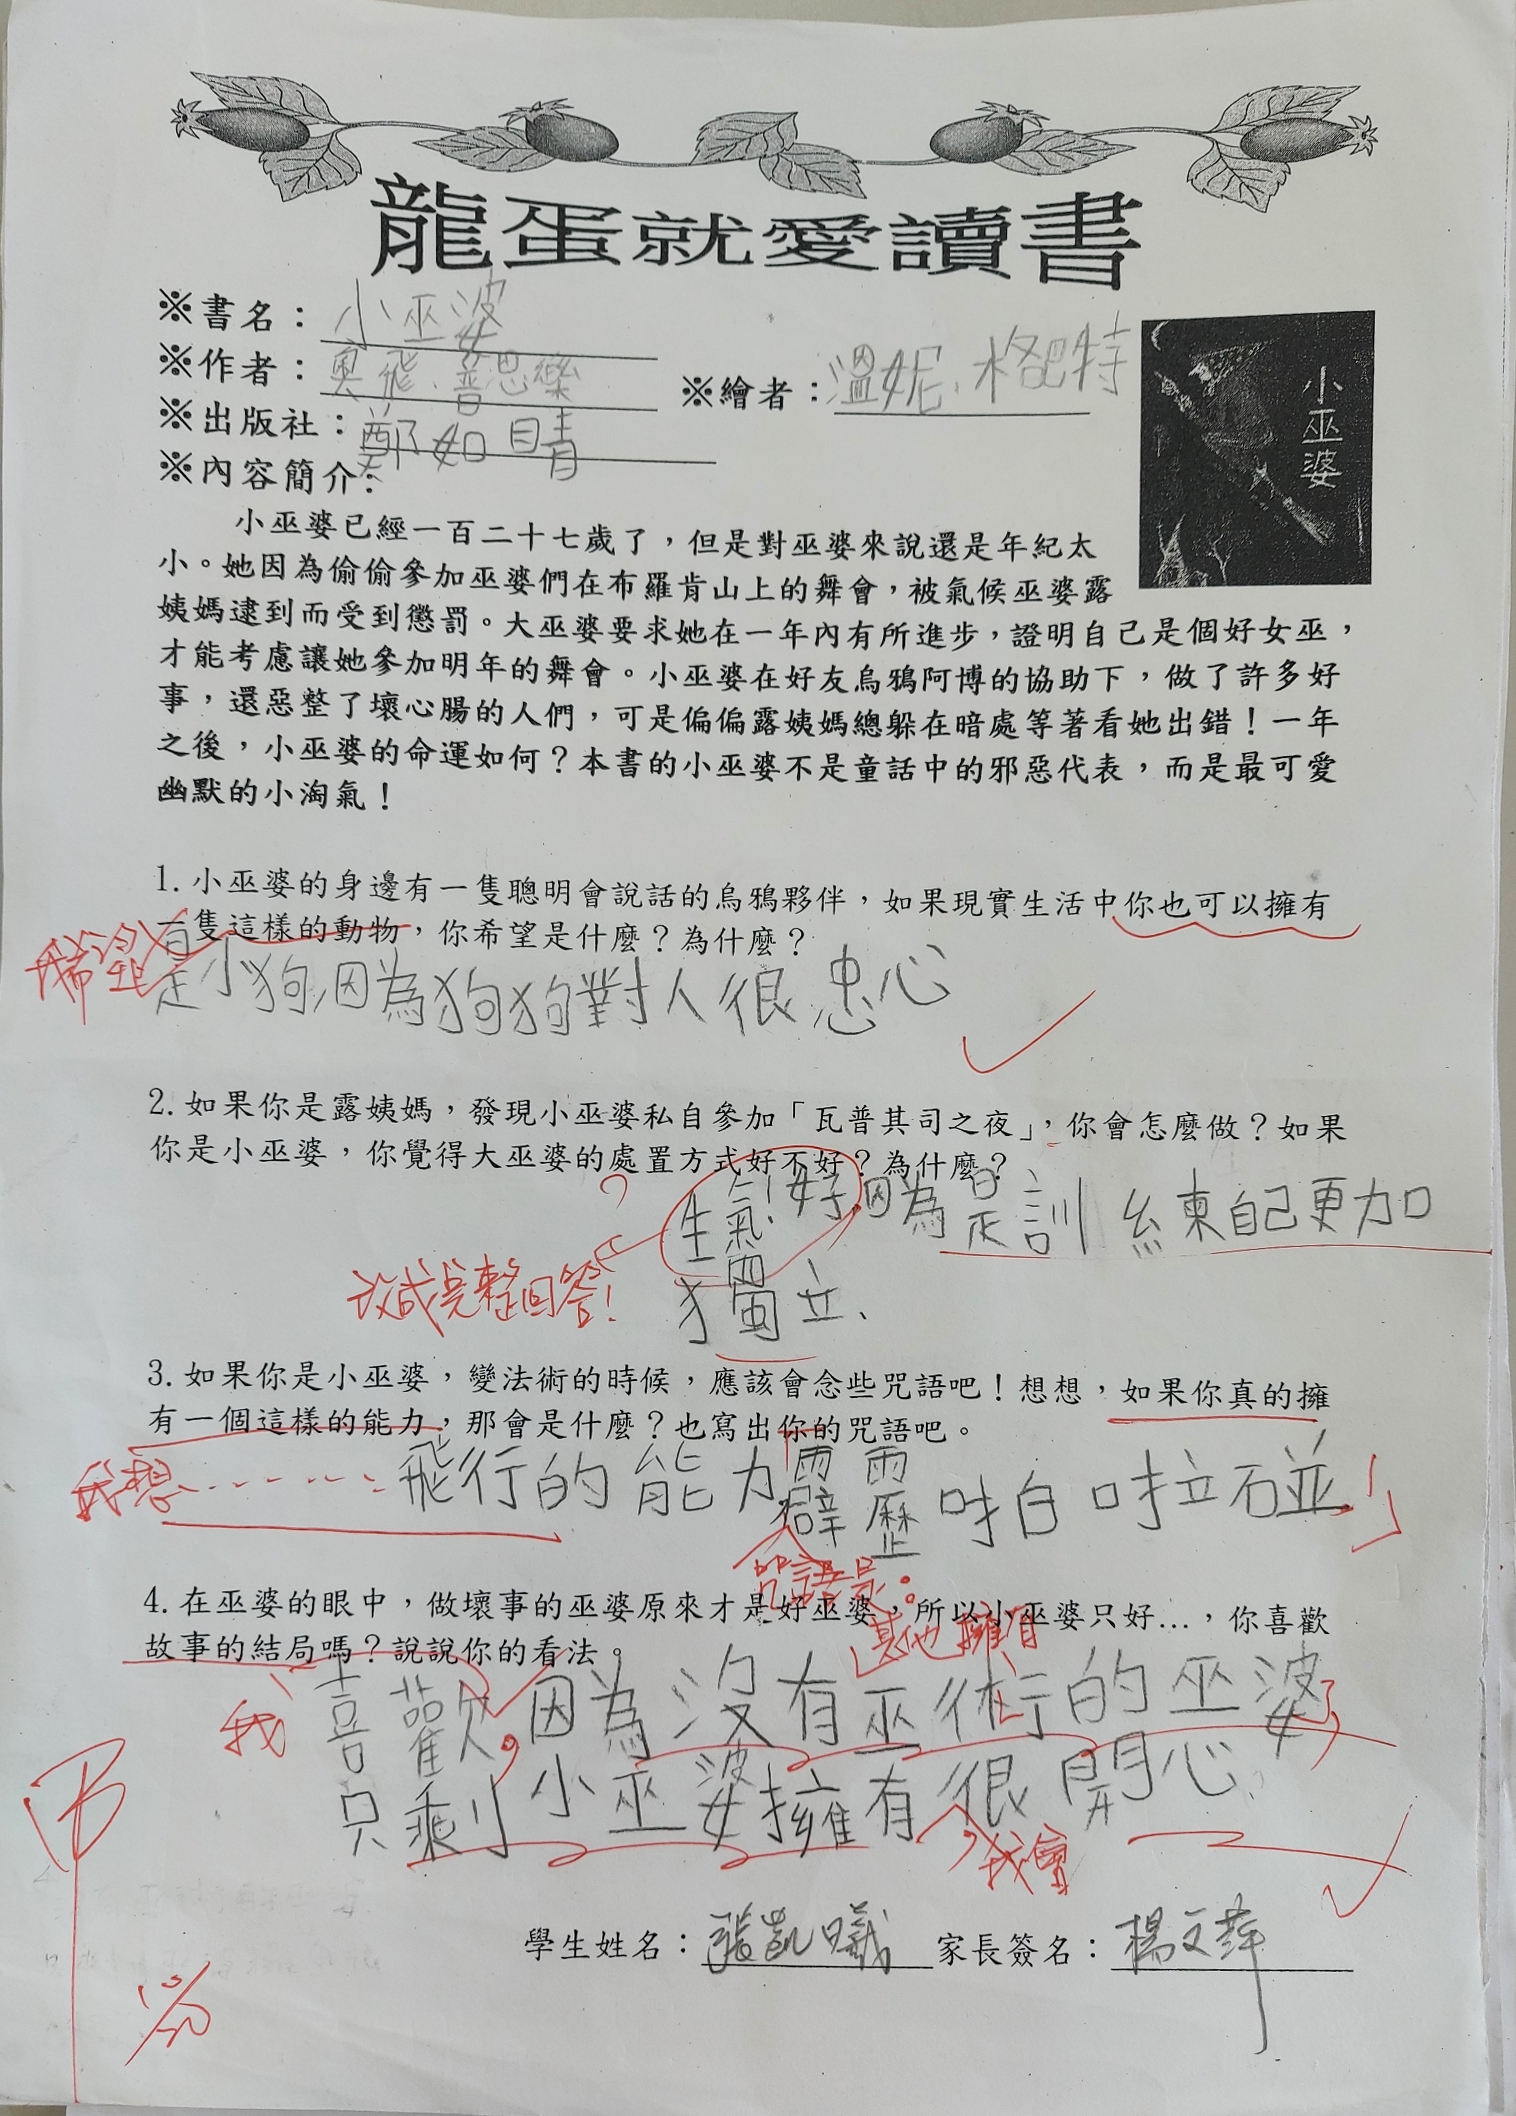 龍蛋就愛讀書
※書名：小巫婆
※作者：奧飛、普思樂 ※繪者：溫妮、格巴特
※出版社：鄭如晴
小巫婆
※內容簡介：
小巫婆已經一百二十七歲了，但是對巫婆來說還是年紀太
小。她因為偷偷參加巫婆們在布羅肯山上的舞會，被氣候巫婆露
姨媽逮到而受到懲罰。大巫婆要求她在一年內有所進步，證明自己是個好女巫，
才能考慮讓她參加明年的舞會。小巫婆在好友烏鴉阿博的協助下，做了許多好
事，還惡整了壞心腸的人們，可是偏偏露姨媽總躲在暗處等著看她出錯！一年
之後，小巫婆的命運如何？本書的小巫婆不是童話中的邪惡代表，而是最可愛
幽默的小淘氣！
1. 小巫婆的身邊有一隻聰明會說話的烏鴉夥伴，如果現實生活中你也可以擁有
一隻這樣的動物，你希望是什麼？為什麼？
我希望有
是小狗，因為狗狗對人很忠心
2. 如果你是露姨媽，發現小巫婆私自參加「瓦普其司之夜」，你會怎麼做？如果
你是小巫婆，你覺得大巫婆的處置方式好不好？為什麼？
生氣！好因為是訓練自己更加
獨立、
沒成完整回答！
3. 如果你是小巫婆，變法術的時候，應該會念些咒語吧！想想，如果你真的擁
有一個這樣的能力，那會是什麼？也寫出你的咒語吧。
我想……飛行的能力霹靂啪啦碰
咒語是：
4. 在巫婆的眼中，做壞事的巫婆原來才是好巫婆，所以小巫婆只好…，你喜歡
故事的結局嗎？說說你的看法。
其他擁有
我喜歡，因為沒有巫術的巫婆了，
只剩小巫婆擁有很開心
，我會
學生姓名：張凱曦 家長簽名：楊文萍
甲